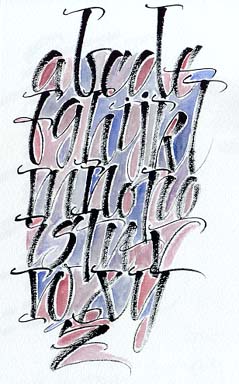 abcde
fghijkl
mnopq
rstuv
wxy
z